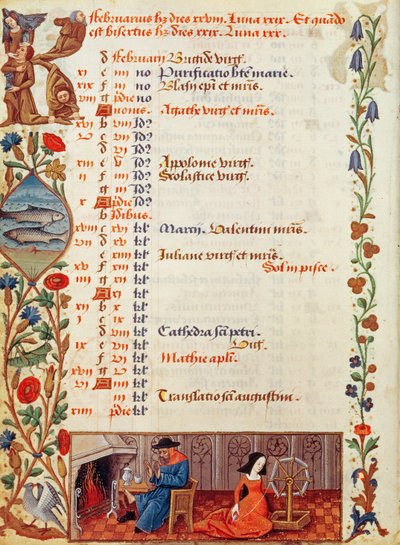 Februarius hz dies xxviii. Luna xxix. Et quando
est bisextus hz dies xxix. Luna xxx.
d februarii Brigide virg
xi e iiii no Purificatio bte marie.
xix f iii no Blasii epi et mris.
viii g pdie no
A Nonus. Agathe virg et mris.
xvi b viii Id
v c vii Id
d vi Id
xiii e v Id Apolonie virg
ii f iiii Id Scolastice virg.
g iii Id
x A pdie Id
b Idibus.
xviii c xvi kl Marcii. Valentini mris.
vii d xv kl
e xiiii kl Juliane virg et mris.
xv f xiii kl Sol in pisce.
iiii g xii kl
A xi kl
xii b x kl
i c ix kl
d viii kl Cathedra sci petri.
ix e vii kl Vigi.
f vi kl Mathie apli.
xvii g v kl
vi A iiii kl
b iii kl Translatio sci augustini.
xiiii c pdie kl